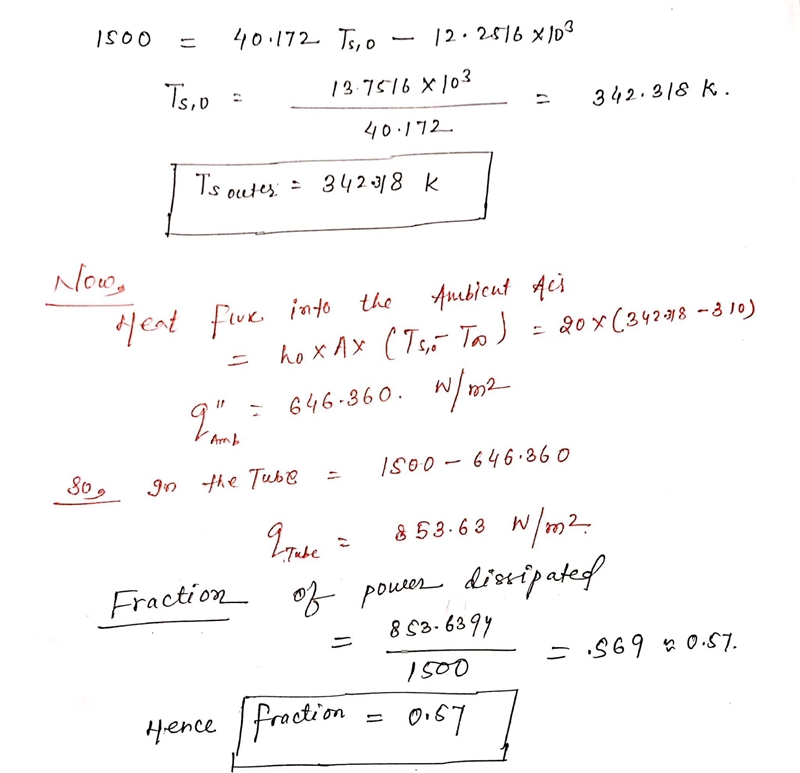 1500 = 40.172 Ts,o - 12.2516 ×10³
Ts,o = 13.7516 ×10³ / 40.172 = 342.318 K.
Ts outer = 342.318 K
Now,
Heat flux into the Ambient Air
= ho × A × (Ts,o - T∞) = 20 × (342.318 - 310)
q"Amb = 646.360. W/m2
So, In the Tube = 1500 - 646.360
qTube = 853.63 W/m2.
Fraction of power dissipated
= 853.6394 / 1500 = .569 ≈ 0.57.
Hence fraction = 0.57